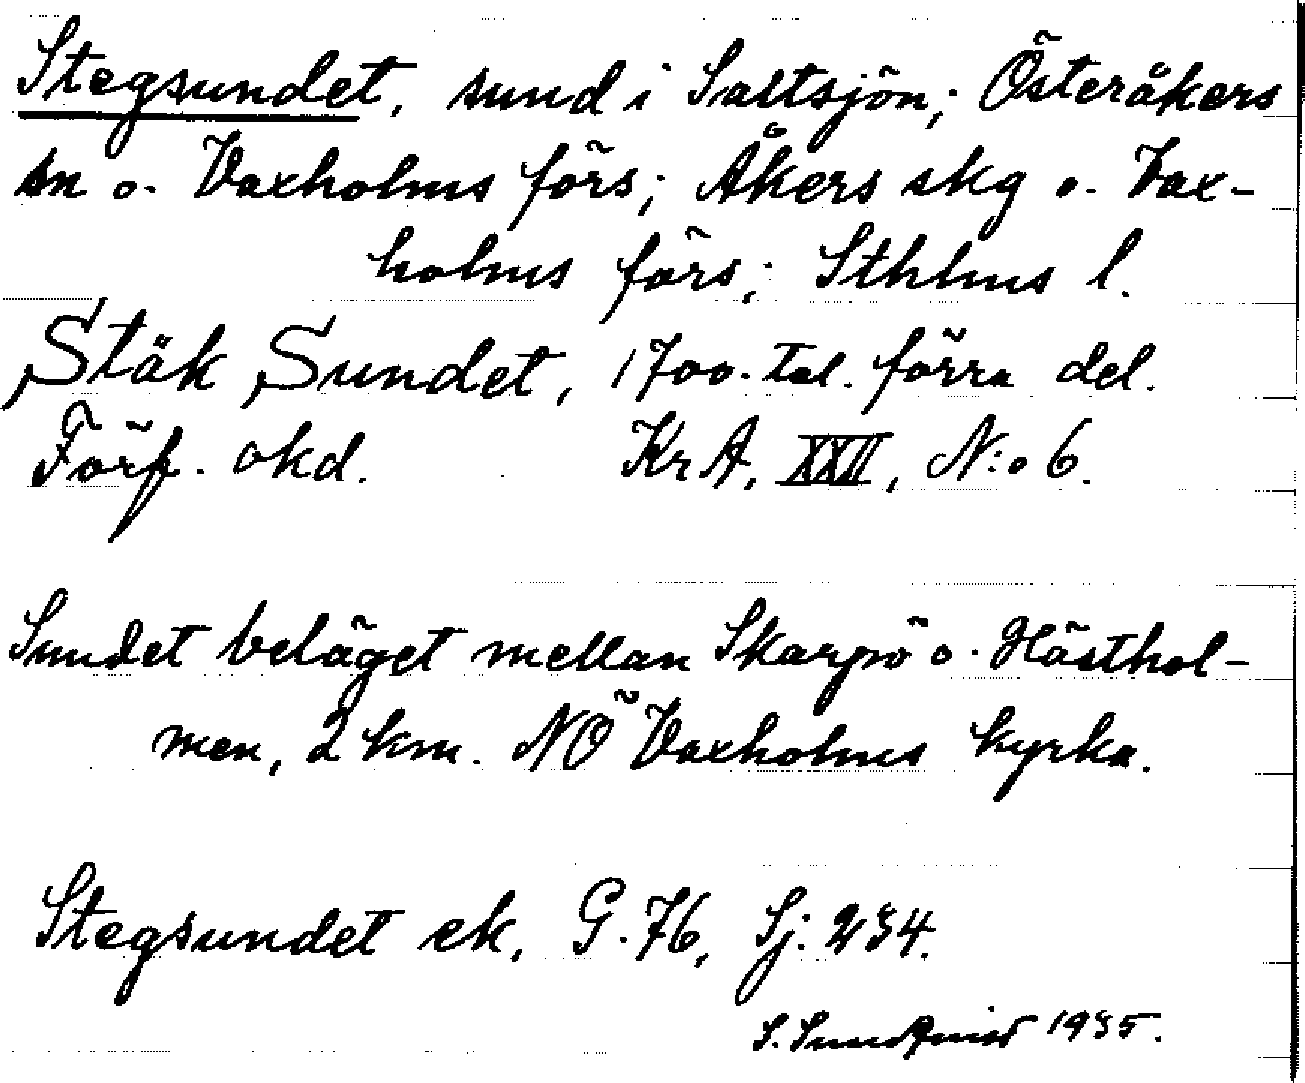 Stegsundet, sund i Saltsjön; Österåkers
sn o. Vaxholms förs; Åkers skg o. Vax-
holms förs; Sthlms l.
Stäk Sundet, 1700-tal. förra del.
Förf. okd. KrA, XXII, N:o 6.
Sundet beläget mellan Skarpö o. Hästhol-
men, 2 km. NÖ Vaxholms kyrka.
Stegsundet ek. G.76, Sj. 234.
S. Sundqvist 1935.